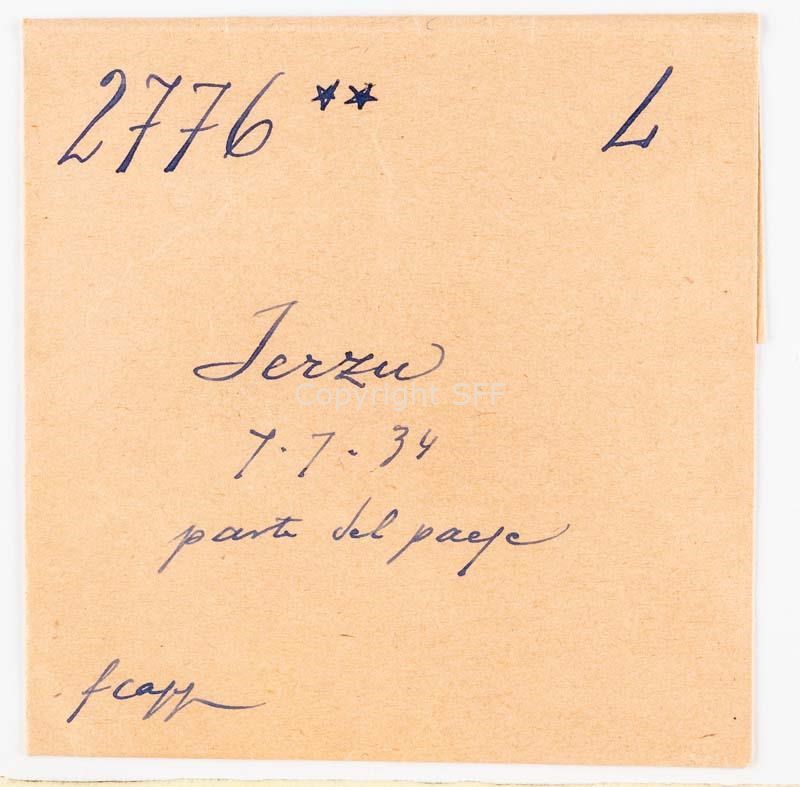 2776 ** L
Jerzu
Copyright SFF
7.7.34
parte del paese